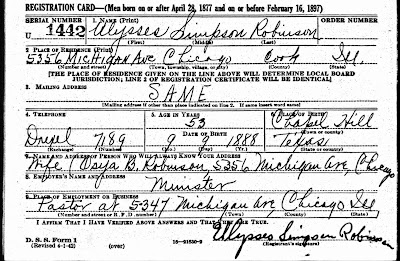 REGISTRATION CARD—(Men born on or after April 28, 1877 and on or before February 16, 1897)
SERIAL NUMBER 1. NAME (Print) ORDER NUMBER
U 1442 Ulysses Simpson Robinson
(First) (Middle) (Last)
2. PLACE OF RESIDENCE (Print)
5356 Michigan Ave Chicago Cook Ill.
(Number and street) (Town, township, village, or city) (County) (State)
[THE PLACE OF RESIDENCE GIVEN ON THE LINE ABOVE WILL DETERMINE LOCAL BOARD
JURISDICTION; LINE 2 OF REGISTRATION CERTIFICATE WILL BE IDENTICAL]
3. MAILING ADDRESS
SAME
(Mailing address if other than place indicated on line 2. If same insert word same)
4. TELEPHONE 5. AGE IN YEARS PLACE OF BIRTH
53 Chapel Hill
Drexel 7189 DATE OF BIRTH 9 1888 (Town or county)
Texas
(Exchange) (Number) (Mo.) (Day) (Yr.) (State or country)
7. NAME AND ADDRESS OF PERSON WHO WILL ALWAYS KNOW YOUR ADDRESS
Wife, B. Robinson 5356 Michigan Ave, Chicago
8. EMPLOYER'S NAME AND ADDRESS
Minister
9. PLACE OF EMPLOYMENT OR BUSINESS
Pastor at 5347 Michigan Ave, Chicago Ill
(Number and street or R. F. D. number) (Town) (County) (State)
I AFFIRM THAT I HAVE VERIFIED ABOVE ANSWERS AND THAT THEY ARE TRUE.
D. S. S. Form 1
(Revised 4-1-42) (over) 16—21630-2 Ulysses Simpson Robinson
(Registrant's signature)